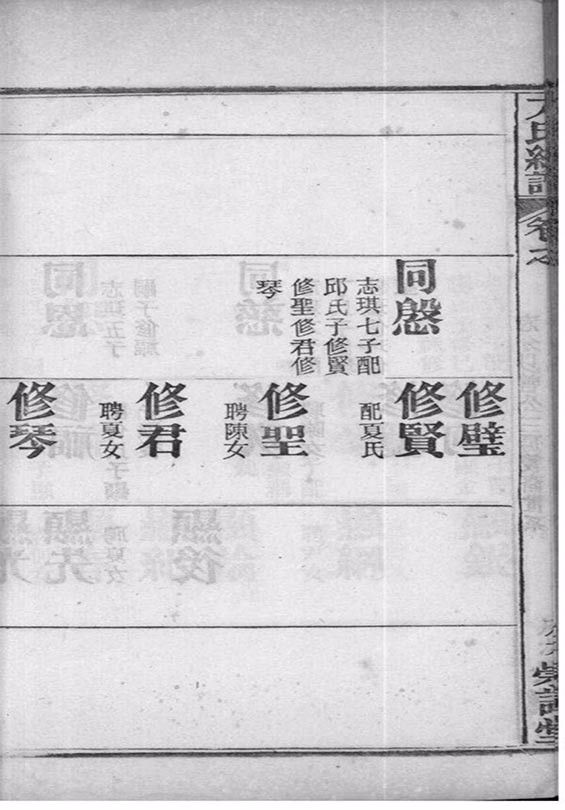 氏
卷之
同慇
志琪七子配
邱氏子修賢
修聖修君修
琴
修璧
修賢
配夏氏
修聖
聘陳女
修君
聘夏女
修琴
堂